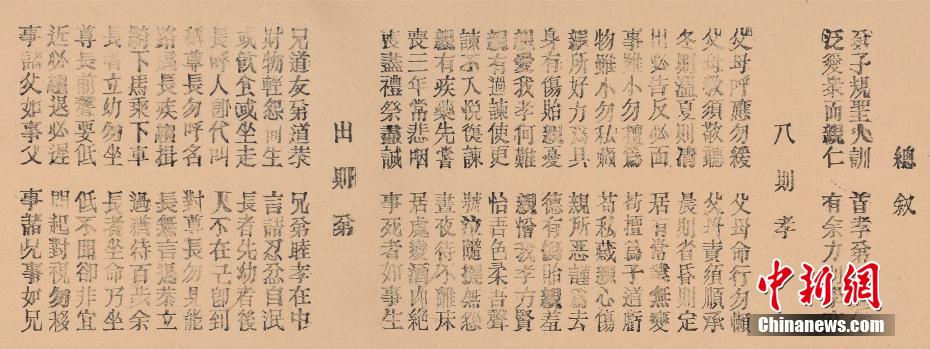 總敘
弟子規聖人訓 首孝弟
泛愛衆而親仁 有余力
八則孝
父母呼應勿緩 父母命行勿懶
父母教須敬聽 父母責須順承
冬則溫夏則凊 晨則省昏則定
出必告反必面 居有常業無變
事雖小勿擅為 苟擅為子道虧
物雖小勿私藏 苟私藏親心傷
親所好力為具 親所惡謹為去
身有傷貽親憂 德有傷貽親羞
親愛我孝何難 親憎我孝方賢
親有過諫使更 怡吾色柔吾聲
諫不入悅復諫 號泣隨撻無怨
親有疾藥先嘗 晝夜侍不離床
喪三年常悲咽 居處變酒肉絕
喪盡禮祭盡誠 事死者如事生
出則弟
兄道友弟道恭 兄弟睦孝在中
財物輕怨何生 言語忍忿自泯
或飲食或坐走 長者先幼者後
長呼人即代叫 人不在己即到
稱尊長勿呼名 對尊長勿見能
路遇長疾趨揖 長無言退恭立
騎下馬乘下車 過猶待百步余
長者立幼勿坐 長者坐命乃坐
尊長前聲要低 低不聞卻非宜
近必趨退必遲 問起對視勿移
事諸父如事父 事諸兄如事兄
中新网
Chinanews.com